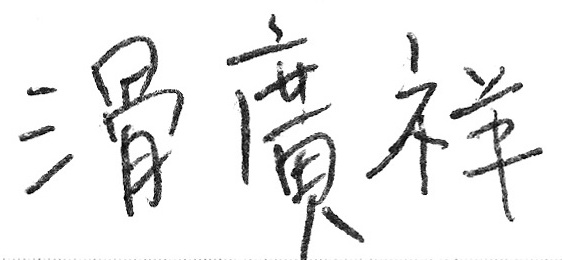 滑廣祥